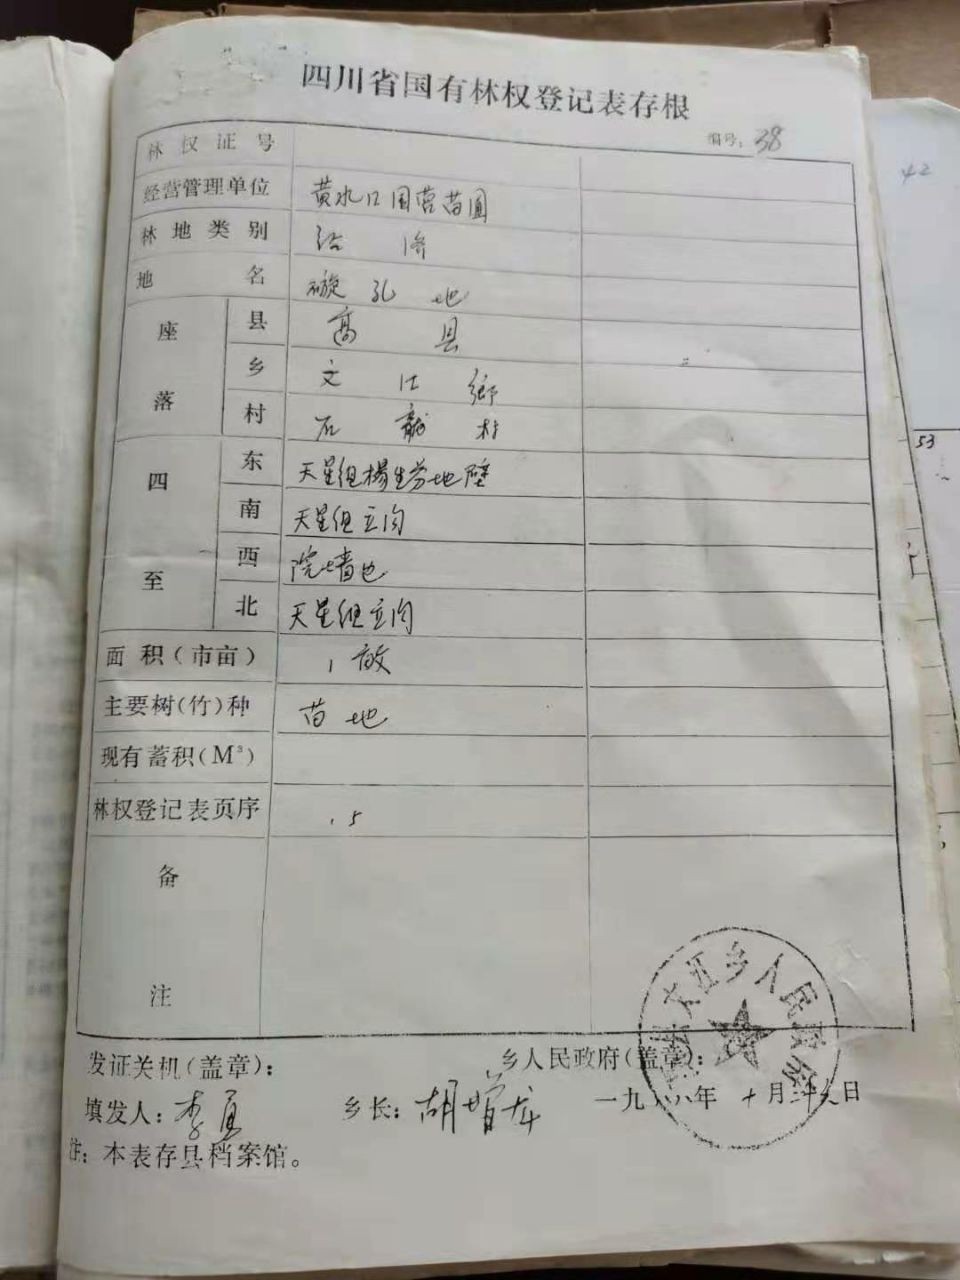 四川省国有林权登记表存根
编号：38
林权证号
经营管理单位 黄水口国营苗圃
林地类别 经济
地名 漩孔地
座落 县 高县
乡 文江鄉
村 石龍村
四至 东 天星组楊生芬地壁
南 天星组立沟
西 院墙边
北 天星组立沟
面积（市亩） 1亩
主要树(竹)种 苗地
现有蓄积(M³)
林权登记表页序 15
备注
发证关机(盖章)：
乡人民政府(盖章)：
文江乡人民政府
填发人：李
乡长：胡增
一九八八年 十月 日
注：本表存县档案馆。
42
53